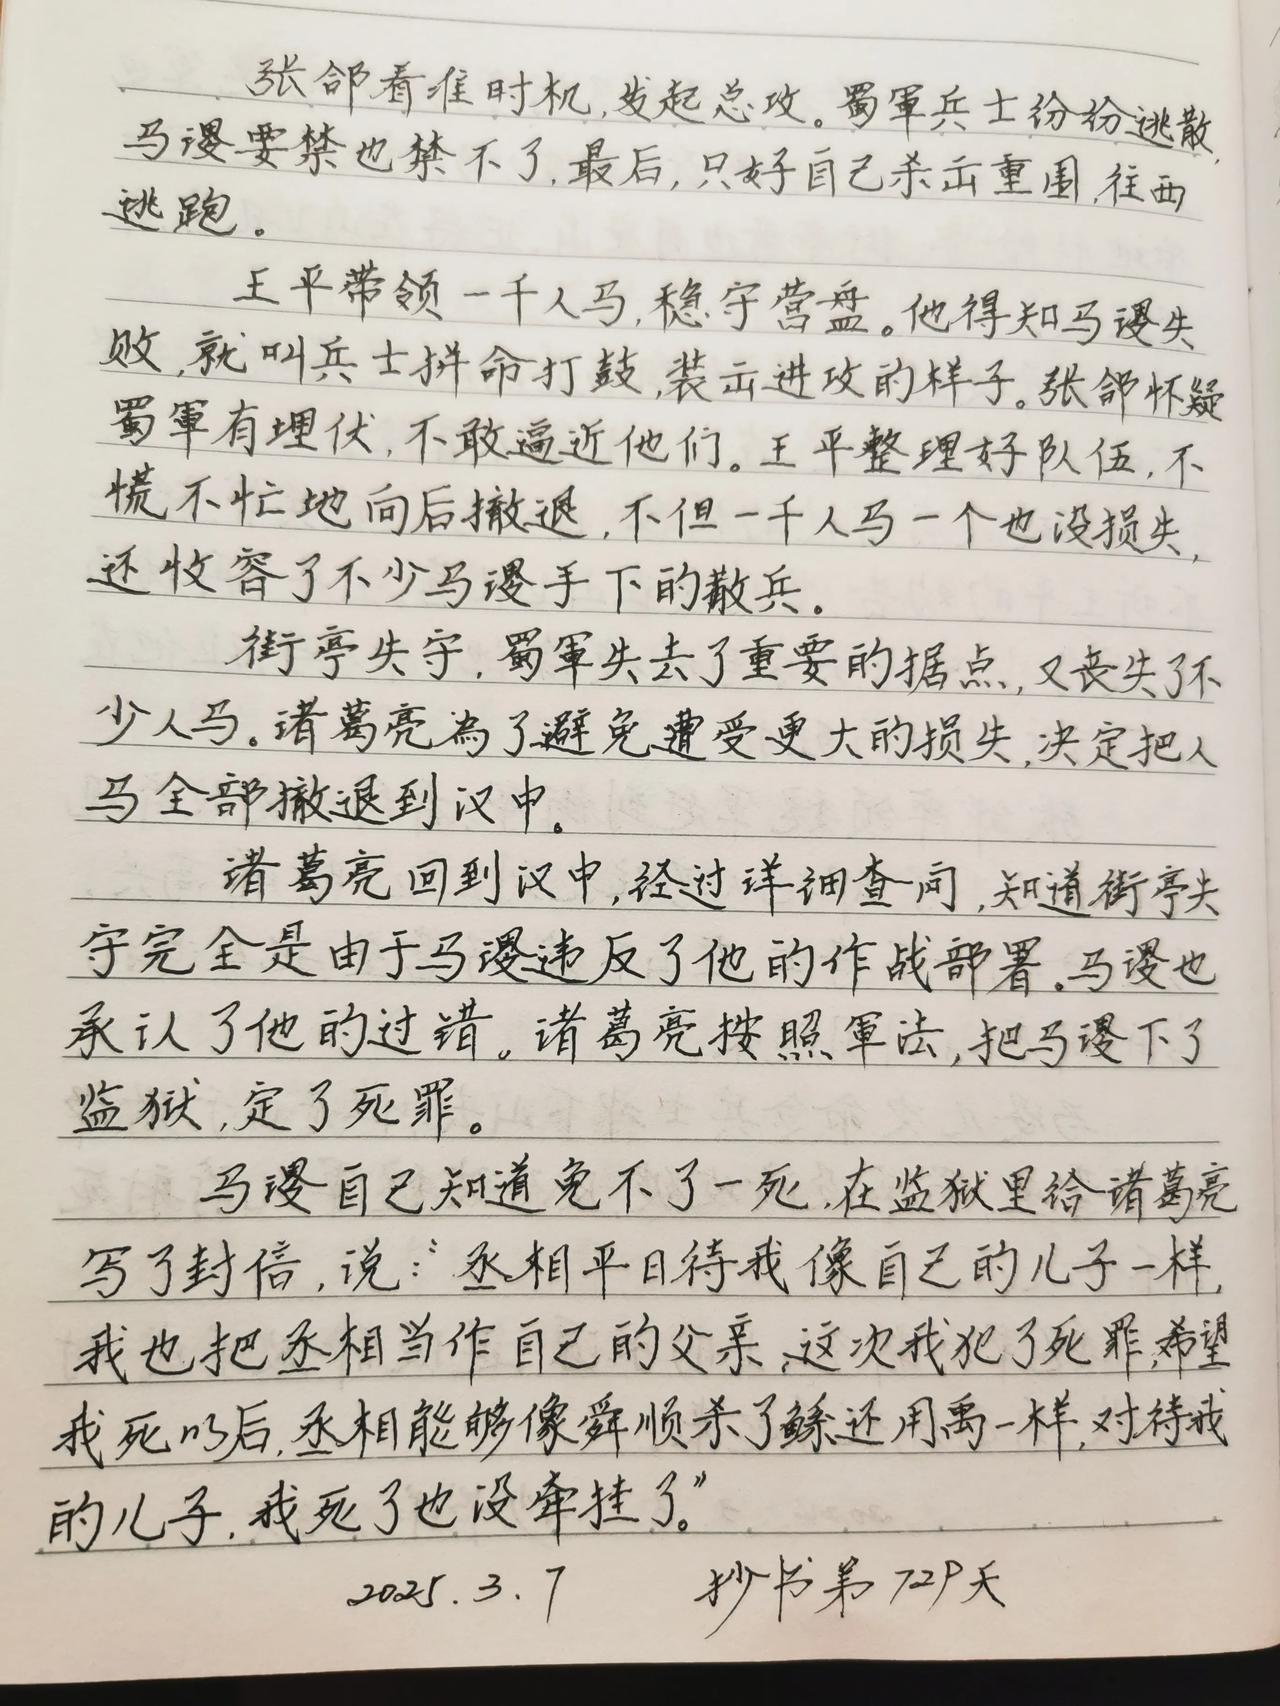 张郃看准时机,发起总攻。蜀軍兵士纷纷逃散,
马谡要禁也禁不了,最后,只好自己杀出重围,往西
逃跑。
王平带领一千人马,稳守营盘。他得知马谡失
败,就叫兵士拼命打鼓,装出进攻的样子。张郃怀疑
蜀軍有埋伏,不敢逼近他们。王平整理好队伍,不
慌不忙地向后撤退,不但一千人马一个也没损失,
还收容了不少马谡手下的散兵。
街亭失守,蜀軍失去了重要的据点,又丧失了不
少人马。诸葛亮為了避免遭受更大的损失,决定把人
马全部撤退到汉中。
诸葛亮回到汉中,经过详细查问,知道街亭失
守完全是由于马谡违反了他的作战部署。马谡也
承认了他的过错。诸葛亮按照軍法,把马谡下了
监狱,定了死罪。
马谡自己知道免不了一死,在监狱里给诸葛亮
写了封信,说:“丞相平日待我像自己的儿子一样,
我也把丞相当作自己的父亲,这次我犯了死罪,希望
我死以后,丞相能够像舜顺杀了鲧还用禹一样,对待我
的儿子,我死了也没牵挂了。”
2025.3.7 抄书第729天